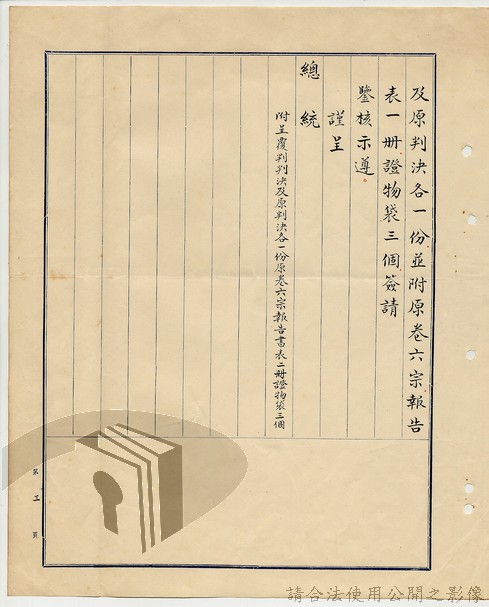 及原判決各一份並附原卷六宗報告
表一冊證物袋三個簽請
鑒核示遵
謹呈
總統
附呈覆判判決及原判決各一份原卷六宗報告書表二冊證物袋三個
第三頁
請合法使用公開之影像